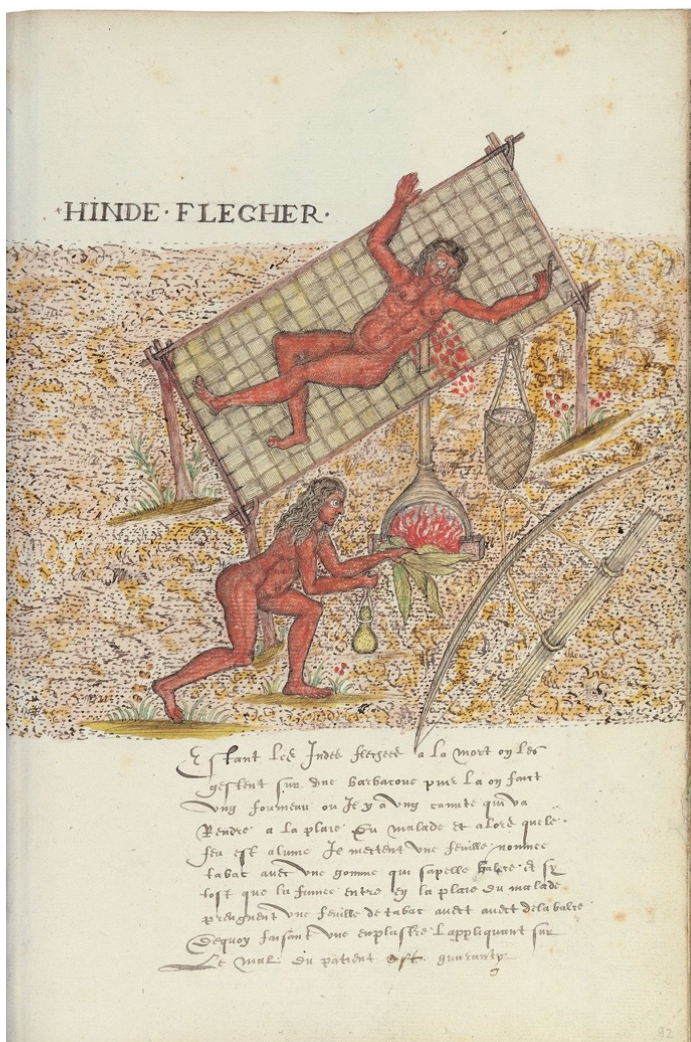 ·HINDE·FLECHER·
Estant les Indes flechees a la mort on les
gestent sur une barbacoue puis la on faict
ung fourneau ou Il y a ung canute qui va
Rendre a la plaie du malade et alors que le
feu est alume Ilz mettent une feuille nommee
tabac avec une gomme qui sapelle balce et sy
tost que la fumee entre en la plaie du malade
prengnent une feuille de tabac avect avect de la balce
dequoy faisant une enplastre Lappliquant sur
Le mal du patient est guaranty
92